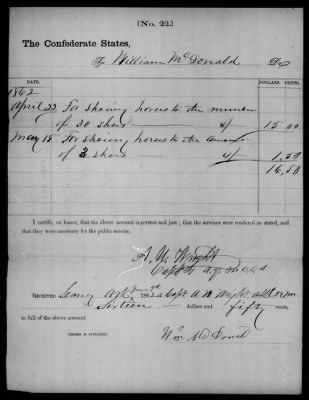 [No. 22.]
The Confederate States,
To William McDonald Dr
DATE. DOLLARS. CENTS.
1862
April 22 For Shoeing horses to the number
of 30 shoes 4/ 15 00
May 15 For Shoeing horses to the amount
of 3 shoes 4/ 1.50
16.50
I certify, on honor, that the above account is correct and just; that the services were rendered as stated, and
that they were necessary for the public service.
Wright
Capt & A.Q.M.
RECEIVED 1862 Capt Wright
Sixteen dollars and fifty cents,
in full of the above account.
Wm McDonald